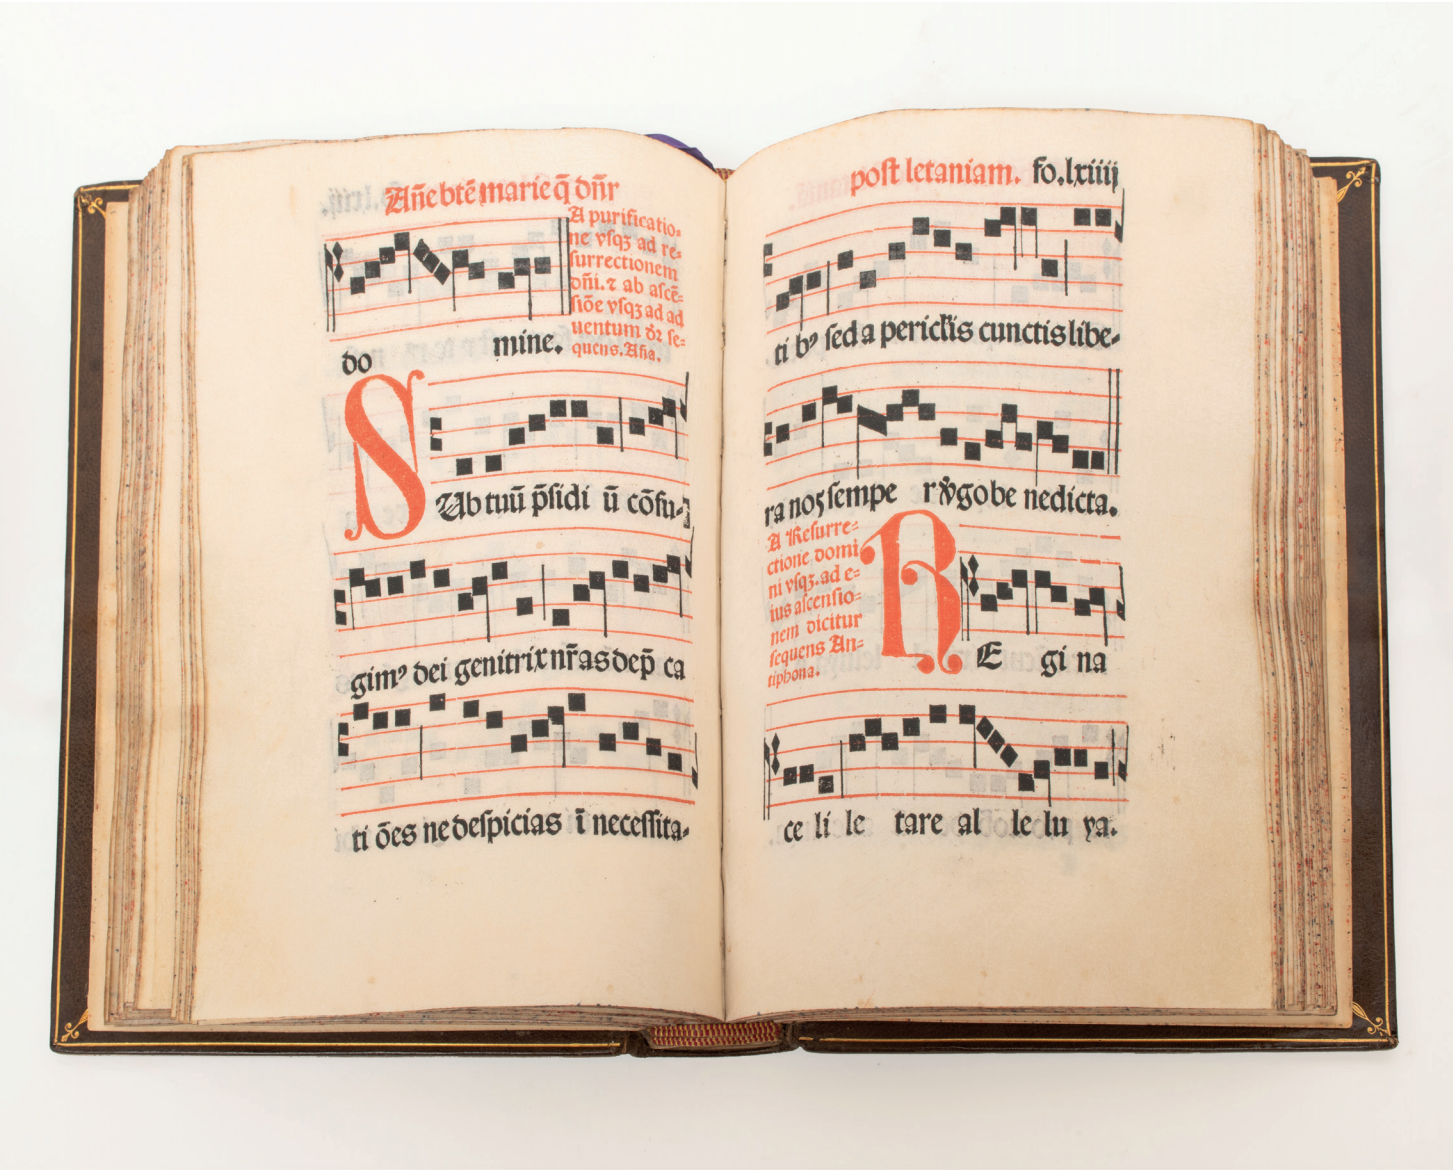 Añe btẽ marie q̃ dñr
A purificatio-
ne vsqꝫ ad re-
surrectionem
dñi. ⁊ ab ascẽ-
siõe vsqꝫ ad ad
uentum dr̃ se-
quens. Aña.
do mine.
SUb tuũ p̃sidi ũ cõfu-
gimꝰ dei genitrix nr̃as dep̃ ca
ti ões ne despicias ĩ necessita-
post letaniam. fo.lxiiij
ti bꝰ sed a periclis cunctis libe-
ra nos semper ṽgo be nedicta.
A Resurre-
ctione domi
ni vsqꝫ. ad e-
ius ascensio-
nem dicitur
sequens An-
tiphona.
RE gi na
ce li le tare al le lu ya.